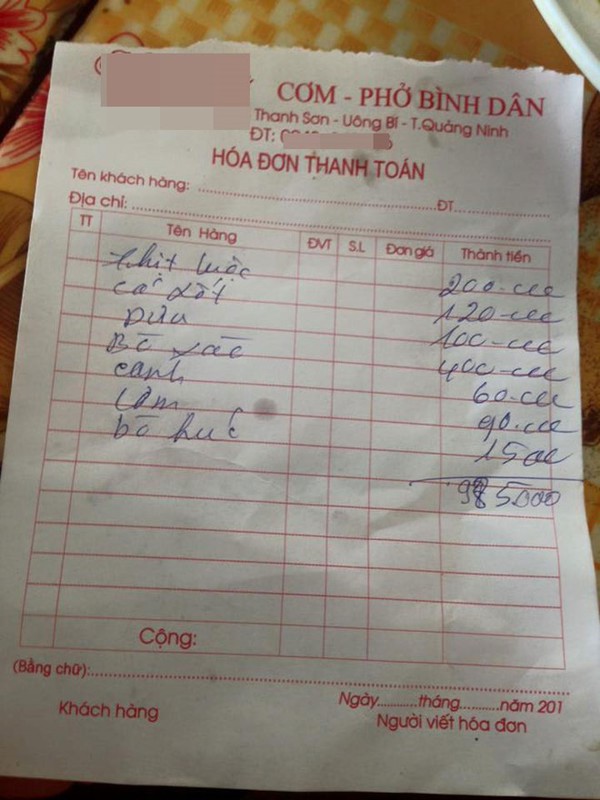 CƠM - PHỞ BÌNH DÂN
Thanh Sơn - Uông Bí - T.Quảng Ninh
ĐT:
HÓA ĐƠN THANH TOÁN
Tên khách hàng: ........................ĐT...............
Địa chỉ: ........................
TT Tên Hàng ĐVT S.L Đơn giá Thành tiền
thịt luộc 200.
cá sốt 120.
Dứa 100.
Bò xào 400.
canh 60.
cơm 90.
bò húc 15
985.000
Cộng:
(Bằng chữ):........................
Ngày..........tháng..........năm 201
Khách hàng Người viết hóa đơn